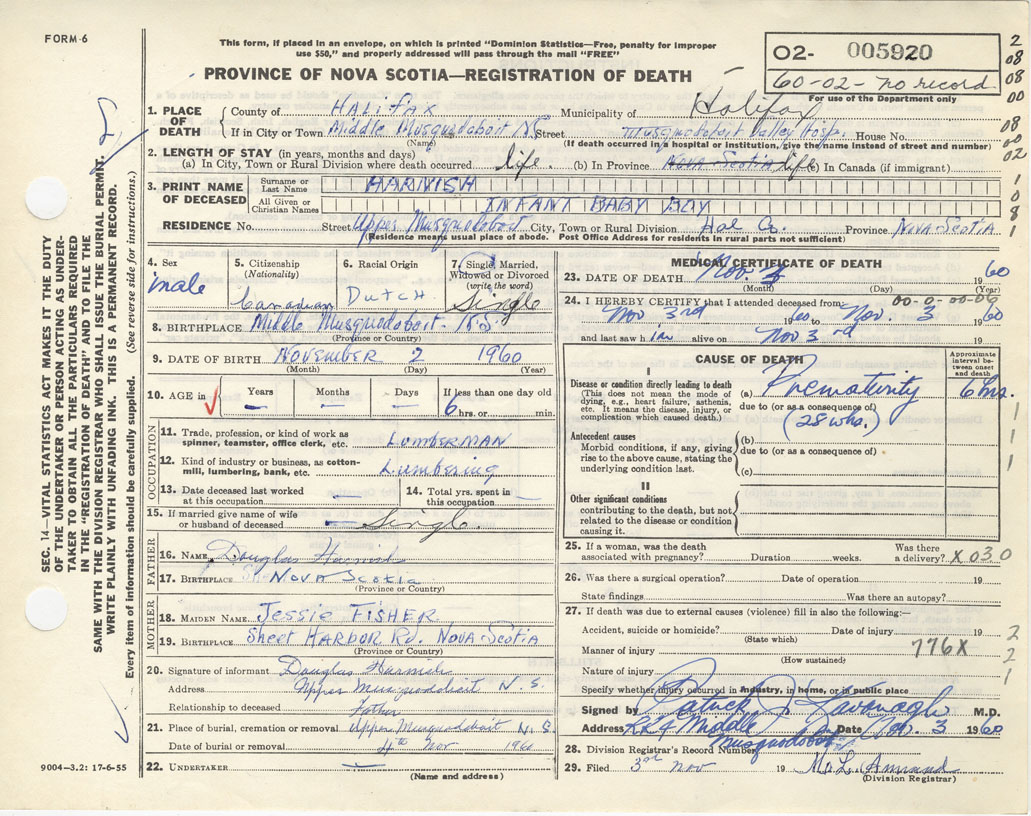 FORM-6
This form, if placed in an envelope, on which is printed "Dominion Statistics—Free, penalty for improper
use $50," and properly addressed will pass through the mail "FREE"
PROVINCE OF NOVA SCOTIA—REGISTRATION OF DEATH
O2- 005920
60-02- no record
For use of the Department only
1. PLACE OF DEATH
County of HALIFAX Municipality of Halifax
If in City or Town Middle Musquodoboit NS Street Musquodoboit Valley Hosp. House No.
(Name) (If death occurred in a hospital or institution, give the name instead of street and number)
2. LENGTH OF STAY (in years, months and days)
(a) In City, Town or Rural Division where death occurred life. (b) In Province Nova Scotia life (c) In Canada (if immigrant)
3. PRINT NAME OF DECEASED
Surname or Last Name HARNISH
All Given or Christian Names INFANT BABY BOY
RESIDENCE No. Street Upper Musquodoboit City, Town or Rural Division Hal Co. Province Nova Scotia
(Residence means usual place of abode. Post Office Address for residents in rural parts not sufficient)
4. Sex male
5. Citizenship (Nationality) Canadian
6. Racial Origin Dutch
7. Single, Married, Widowed or Divorced (write the word) Single
8. BIRTHPLACE Middle Musquodoboit - N.S.
(Province or Country)
9. DATE OF BIRTH November 2 1960
(Month) (Day) (Year)
10. AGE in Years Months Days If less than one day old
6 hrs. or min.
OCCUPATION
11. Trade, profession, or kind of work as spinner, teamster, office clerk, etc. LUMBERMAN
12. Kind of industry or business, as cotton-mill, lumbering, bank, etc. Lumbering
13. Date deceased last worked at this occupation
14. Total yrs. spent in this occupation
15. If married give name of wife or husband of deceased Single.
FATHER
16. NAME Douglas Harnish
17. BIRTHPLACE Nova Scotia
(Province or Country)
MOTHER
18. MAIDEN NAME Jessie FISHER
19. BIRTHPLACE Sheet HARBOR Rd. NOVA SCOTIA
(Province or Country)
20. Signature of informant Douglas Harnish
Address Upper Musquodoboit N.S.
Relationship to deceased Father
21. Place of burial, cremation or removal Upper Musquodoboit N.S.
Date of burial or removal 4th Nov 1960
22. UNDERTAKER
(Name and address)
MEDICAL CERTIFICATE OF DEATH
23. DATE OF DEATH Nov. 1960
(Month) (Day) (Year)
24. I HEREBY CERTIFY that I attended deceased from: 00-0-00-06
Nov 3rd 1960 to Nov. 3 1960
and last saw him alive on Nov 3rd 19
CAUSE OF DEATH
Approximate interval between onset and death
I
Disease or condition directly leading to death
(This does not mean the mode of dying, e.g., heart failure, asthenia, etc. It means the disease, injury, or complication which caused death.)
(a) Prematurity 6 hrs.
due to (or as a consequence of)
(28 wks.)
Antecedent causes
Morbid conditions, if any, giving rise to the above cause, stating the underlying condition last.
(b)
due to (or as a consequence of)
(c)
II
Other significant conditions
contributing to the death, but not related to the disease or condition causing it.
25. If a woman, was the death associated with pregnancy? Duration weeks. Was there a delivery? X030
26. Was there a surgical operation? Date of operation 19
State findings Was there an autopsy?
27. If death was due to external causes (violence) fill in also the following:—
Accident, suicide or homicide? Date of injury 19
(State which)
Manner of injury 776X
(How sustained)
Nature of injury
Specify whether injury occurred in industry, in home, or in public place
Signed by Patrick J Kavanagh M.D.
Address RR4 Middle Musquodoboit Date Nov. 3 1960
28. Division Registrar's Record Number
29. Filed 3rd Nov 19
(Division Registrar)
SEC. 14—VITAL STATISTICS ACT MAKES IT THE DUTY
OF THE UNDERTAKER OR PERSON ACTING AS UNDER-
TAKER TO OBTAIN ALL THE PARTICULARS REQUIRED
IN THE "REGISTRATION OF DEATH" AND TO FILE THE
SAME WITH THE DIVISION REGISTRAR WHO SHALL ISSUE THE BURIAL PERMIT.
WRITE PLAINLY WITH UNFADING INK. THIS IS A PERMANENT RECORD.
Every item of information should be carefully supplied. (See reverse side for instructions.)
9004—3.2: 17-6-55
2
08
08
00
08
00
02
1
0
8
1
1
1
1
2
2
1